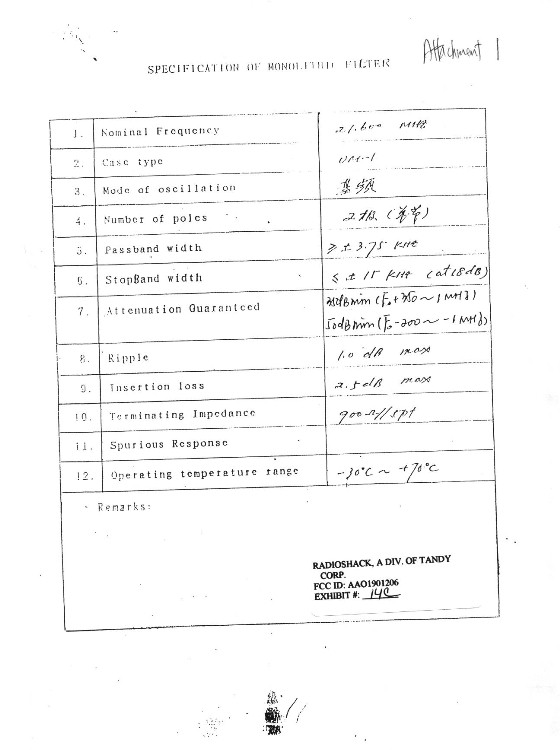 Attachment 1
SPECIFICATION OF MONOLITHIC FILTER
1. Nominal Frequency 21.600 MHz
2. Case type UM-1
3. Mode of oscillation 基频
4. Number of poles 2极 ( )
5. Passband width ≥ ± 3.75 KHz
6. StopBand width ≤ ± 15 KHz (at 18dB)
7. Attenuation Guaranteed
min (Fo + ~ 1 MHz)
50dB min (Fo -200 ~ -1 MHz)
8. Ripple 1.0 dB max
9. Insertion loss 2.5 dB max
10. Terminating Impedance 900 Ω// 5pf
11. Spurious Response
12. Operating temperature range -30°C ~ +70°C
Remarks:
RADIOSHACK, A DIV. OF TANDY
CORP.
FCC ID: AAO1901206
EXHIBIT #: 14C